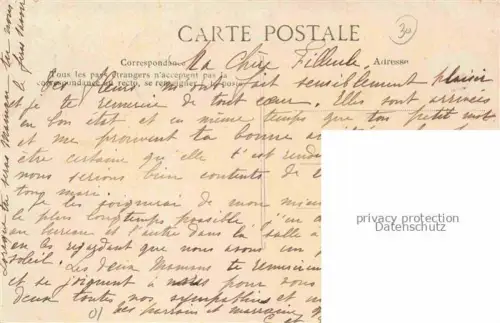 CARTE POSTALE
30
Correspondance Adresse
Tous les pays étrangers n'acceptent pas la
correspondance au recto, se renseigner à la poste
Ma Chère Filleule,
Les fleurs m'ont fait sensiblement plaisir
et je te remercie de tout cœur. Elles sont arrivées
en bon état et en même temps que ton petit mot
et me prouvent ta bonne
être certaine qu'elle t'est rendu
nous serions bien contents de
ton mari.
Je les soignerai de mon mieux
le plus longtemps possible j'en ai
au bureau et l'autre dans la salle à
en les regardant que nous avons un
soleil. Les deux Mamans te remercient
et se joignent à nous pour vous
deux toutes nos sympathies et
des parrain et marraine
Lorsque tu seras Maman tu nous
le feras savoir
privacy protection
Datenschutz